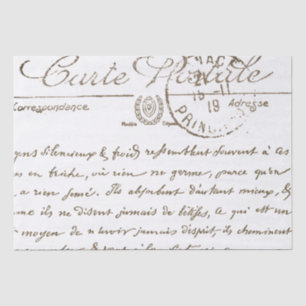 Carte Postale
Correspondance
Adresse
15-11
19
gens silencieux & froids ressemblent souvent à ces
en friche, où rien ne germe, parce qu'on
a rien semé. Ils absorbent d'autant mieux, &
me ils ne disent jamais de bêtises, ce qui est un
moyen de n'avoir jamais d'esprit, ils cheminent